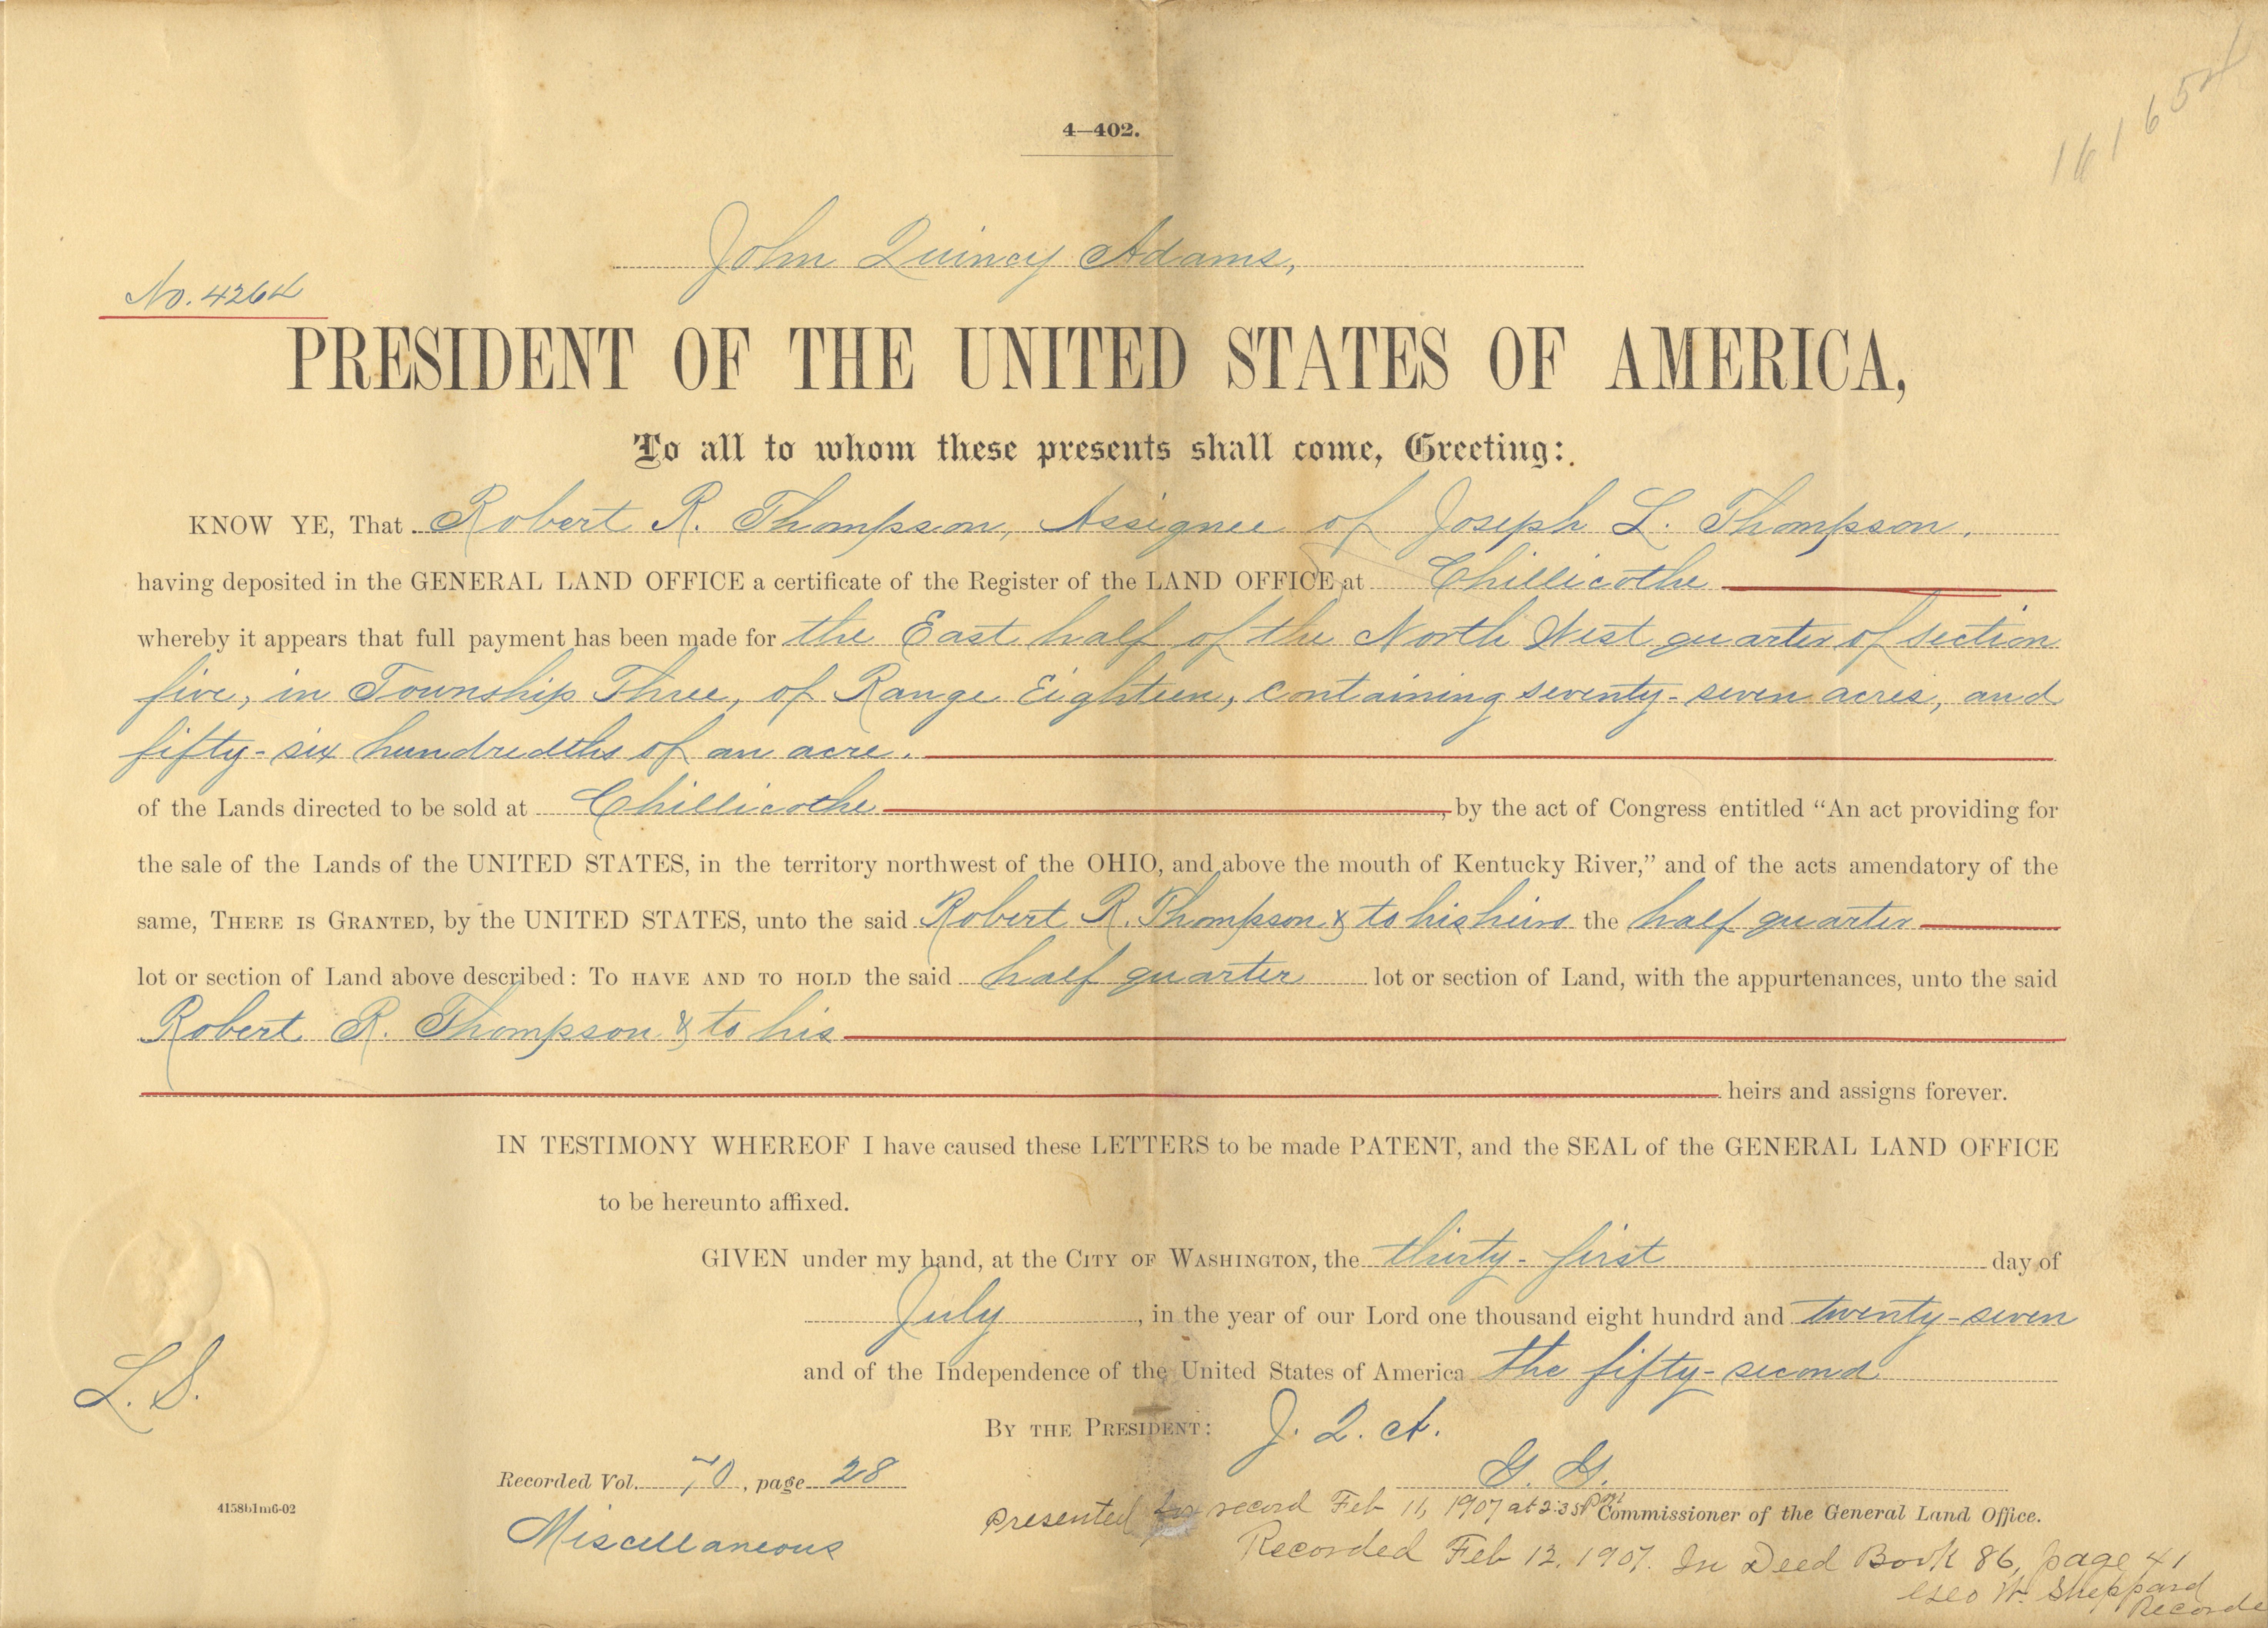 4—402.
161654
John Quincy Adams,
No. 4264
PRESIDENT OF THE UNITED STATES OF AMERICA,
To all to whom these presents shall come, Greeting:
KNOW YE, That Robert R. Thompson, Assignee of Joseph L. Thompson,
having deposited in the GENERAL LAND OFFICE a certificate of the Register of the LAND OFFICE at Chillicothe
whereby it appears that full payment has been made for the East half of the North West quarter of section
five, in Township Three, of Range Eighteen, containing seventy-seven acres, and
fifty-six hundredths of an acre.
of the Lands directed to be sold at Chillicothe, by the act of Congress entitled "An act providing for
the sale of the Lands of the UNITED STATES, in the territory northwest of the OHIO, and above the mouth of Kentucky River," and of the acts amendatory of the
same, THERE IS GRANTED, by the UNITED STATES, unto the said Robert R. Thompson & to his heirs the half quarter
lot or section of Land above described: TO HAVE AND TO HOLD the said half quarter lot or section of Land, with the appurtenances, unto the said
Robert R. Thompson & to his
heirs and assigns forever.
IN TESTIMONY WHEREOF I have caused these LETTERS to be made PATENT, and the SEAL of the GENERAL LAND OFFICE
to be hereunto affixed.
GIVEN under my hand, at the CITY OF WASHINGTON, the thirty-first day of
July, in the year of our Lord one thousand eight hundrd and twenty-seven
and of the Independence of the United States of America the fifty-second
L. S.
BY THE PRESIDENT: J. Q. A.
G. G.
Recorded Vol. 70, page 28
4158b1m6-02
Commissioner of the General Land Office.
Miscellaneous
Presented for record Feb 11, 1907 at 2:35 PM
Recorded Feb 12, 1907. In Deed Book 86, page 41
Geo W. Sheppard
Recorde